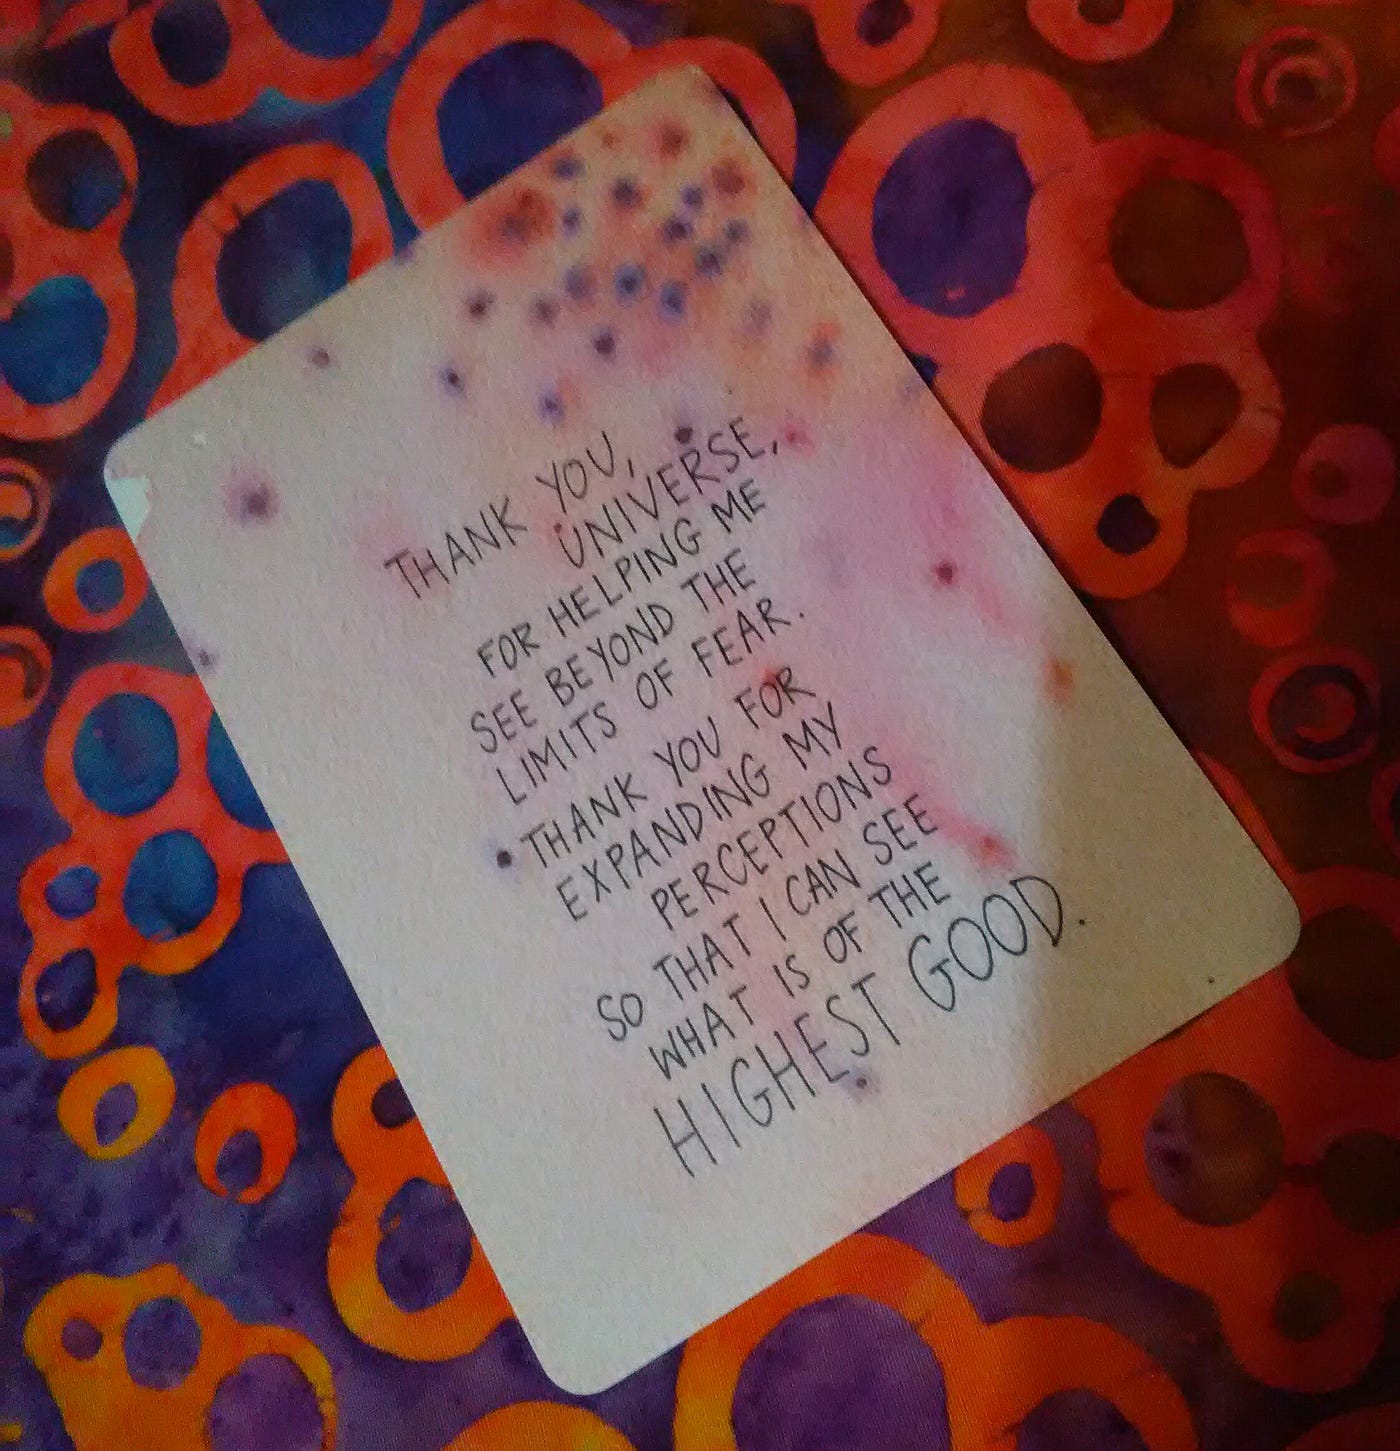 THANK YOU,
UNIVERSE,
FOR HELPING ME
SEE BEYOND THE
LIMITS OF FEAR.
THANK YOU FOR
EXPANDING MY
PERCEPTIONS
SO THAT I CAN SEE
WHAT IS OF THE
HIGHEST GOOD.